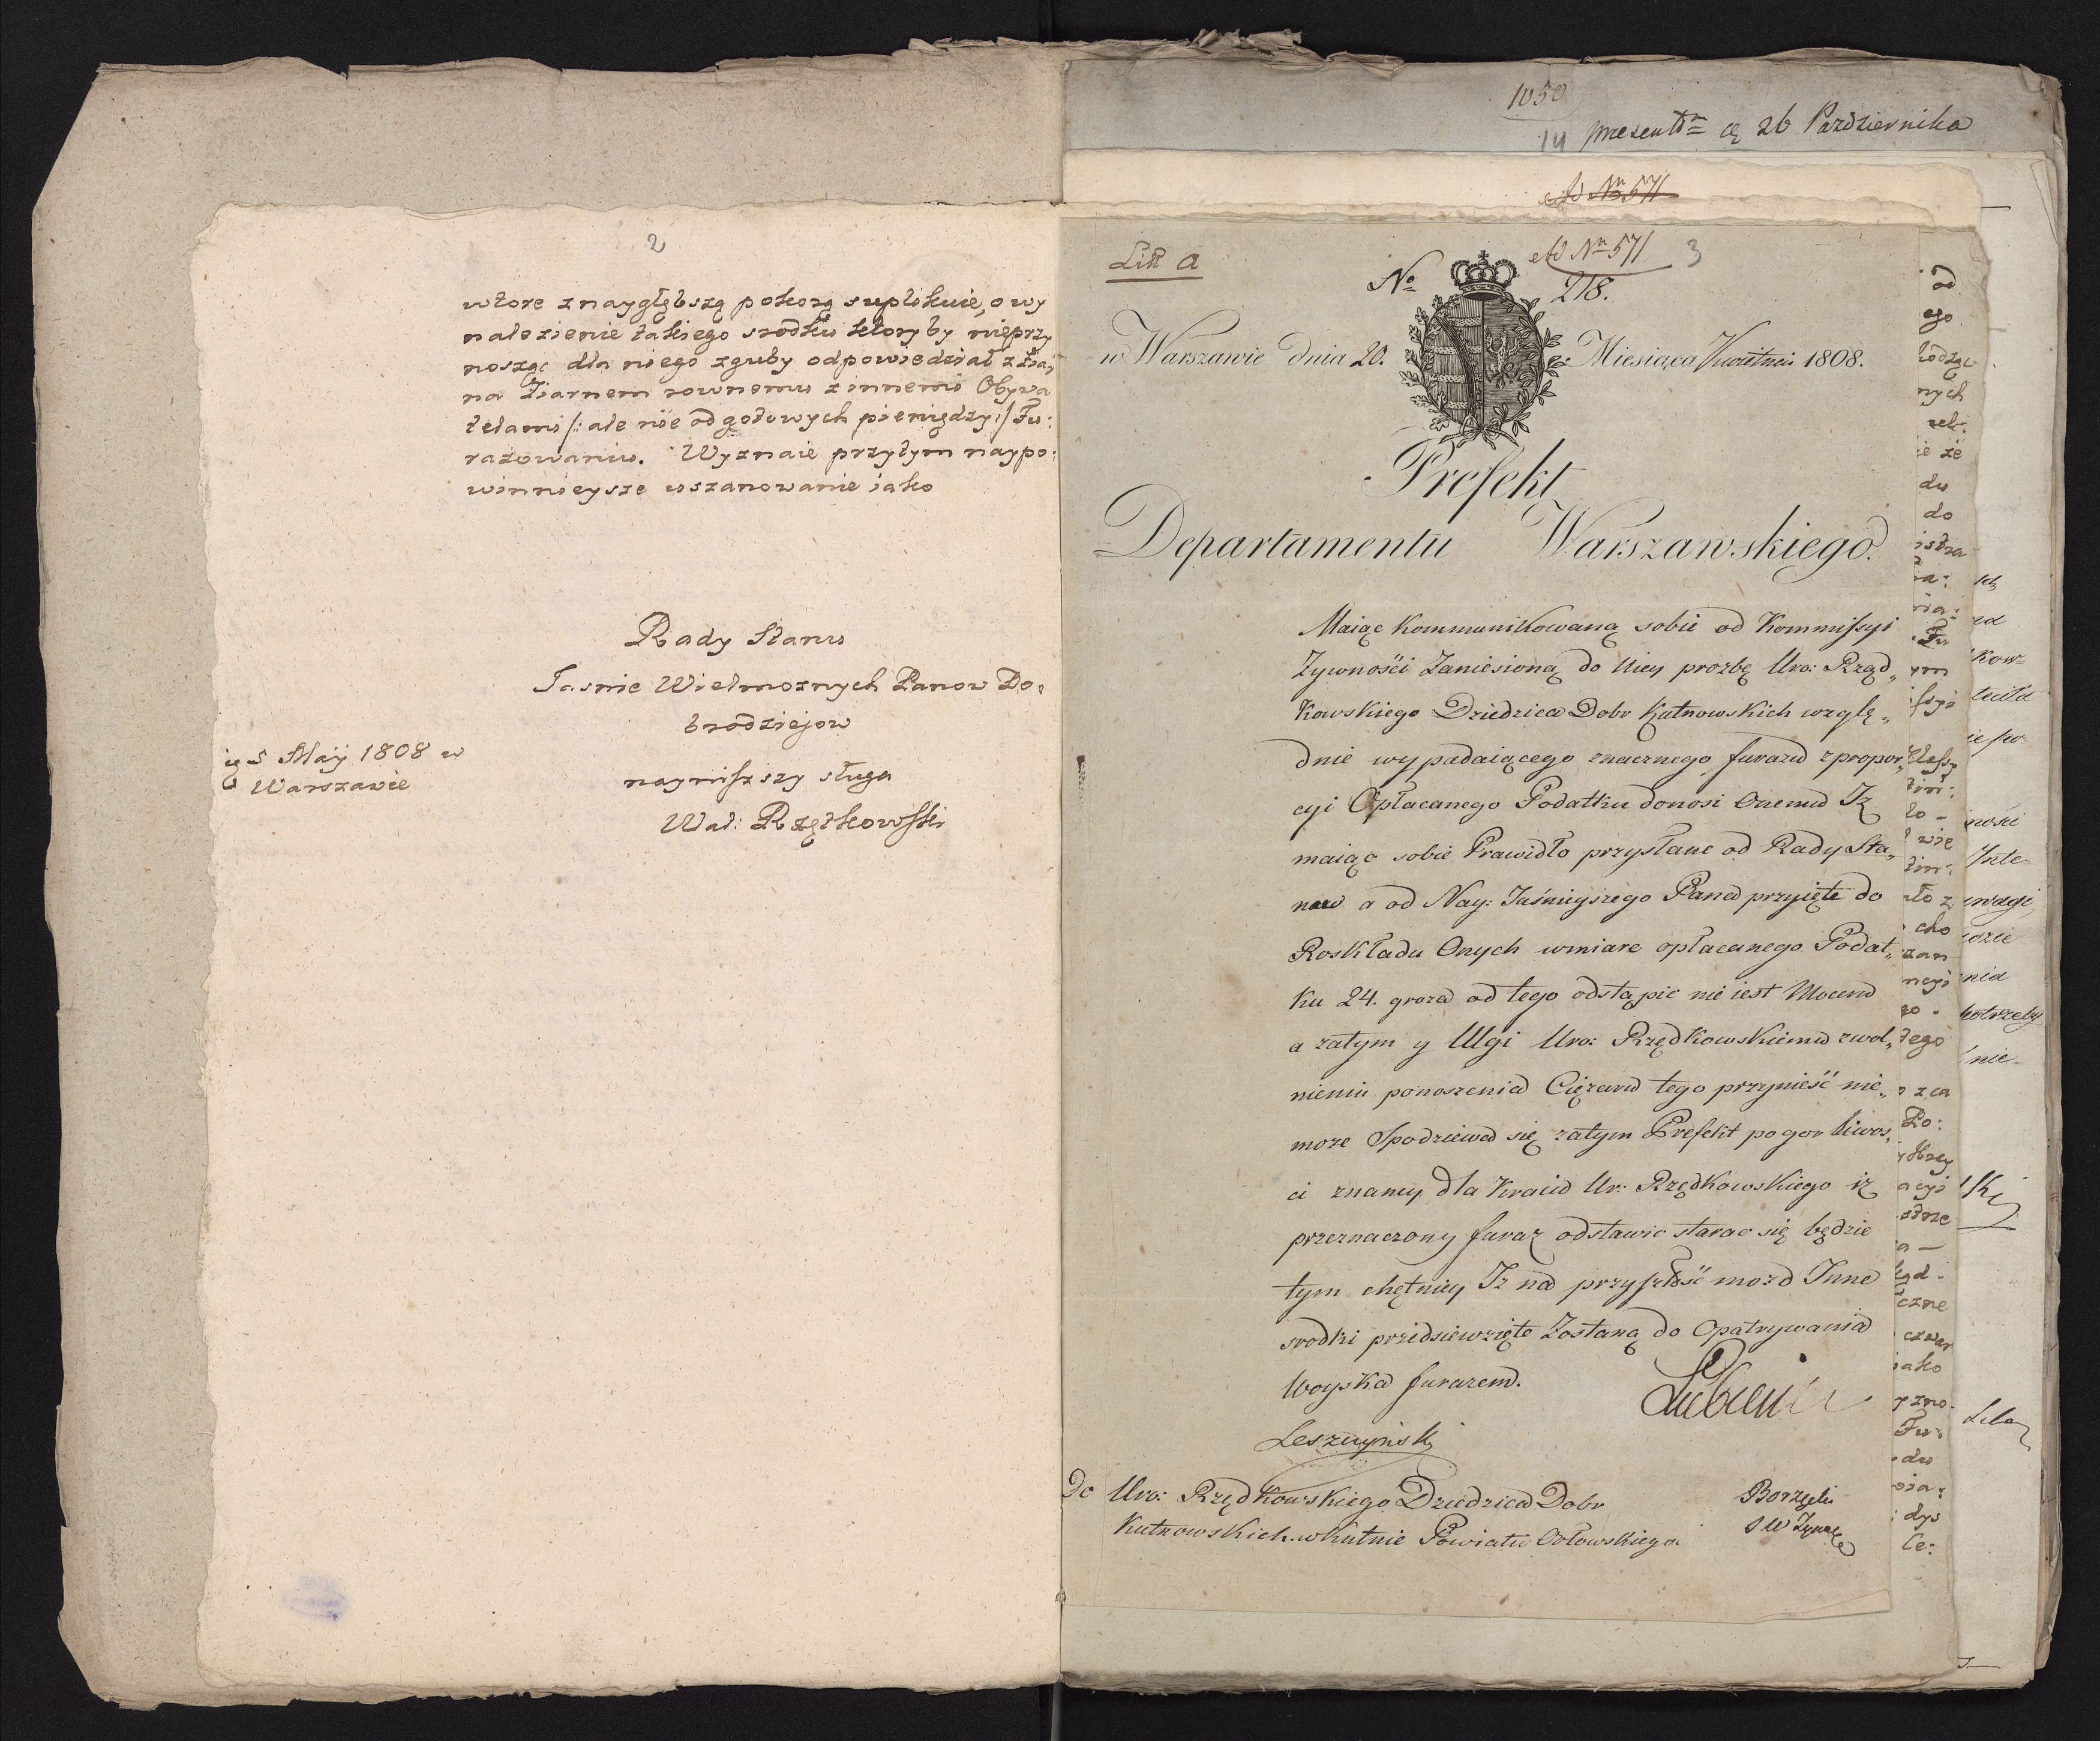 2
wtore z naygłębszą pokorą suplikuie, o wy
nalezienie takiego srodku ktory by nieprzy
nosząc dla niego zguby odpowiedział z Ziar
na Ziarnem rownemu z innemi Obywa
telami /: ale nie od gotowych pieniędzy :/ Fu:
razowaniu. Wyznaie przytym naypo:
winnieysze uszanowanie iako
Rady Stanu
Jasnie Wielmoznych Panow Do:
brodziejow
nayniższy sługa
Wal: Rzętkowski
5 Maij 1808 w
Warszawie
1050
14 præsentt cę 26 Pazdziernika
Ad Nr 571
Litt a
Ad Nr 571
3
No 218.
w Warszawie dnia 20. Miesiąca Kwietnia 1808.
Prefekt
Departamentu Warszawskiego.
Maiąc Kommunikowaną sobie od Kommissyi
Zywnośći Zaniesioną do Niey prozbę Uro: Rzęd„
Kowskiego Dziedzica Dobr Kutnowskich wzglę„
dnie wypadaiącego znacznego furazu z propor„
cyi Opłacanego Podatku donosi Onemu Iz
maiąc sobie Prawidło przysłane od Rady Sta„
nu a od Nay: Jaśnieyszego Pana przyięte do
Roskładu Onych w miare opłacanego Podat„
ku 24. grosza od tego odstąpic nie iest Mocen
a zatym y Ulgi Uro: Rzędkowskiemu zwol„
nieniu ponoszenia Ciężaru tego przynieść nie„
moze Spodziewa się zatym Prefekt po gorliwos„
ci znaney dla Kraiu Ur: Rzędkowskiego iż
przeznaczony furaz odstawic starac się będzie
tym chętniey Iz na przyszłość mozd Inne
srodki przedsiewzięte Zostaną do Opatrywania
Woyska furazem.
Leszczyński
Do Uro: Rzędkowskiego Dziedzica Dobr
Kutnowskich w Kutnie Powiatu Orłowskiego
od
ego
nych
ze
du
do
ym
wie
cho
tego
Po:
czne
iako
Fu:
dys